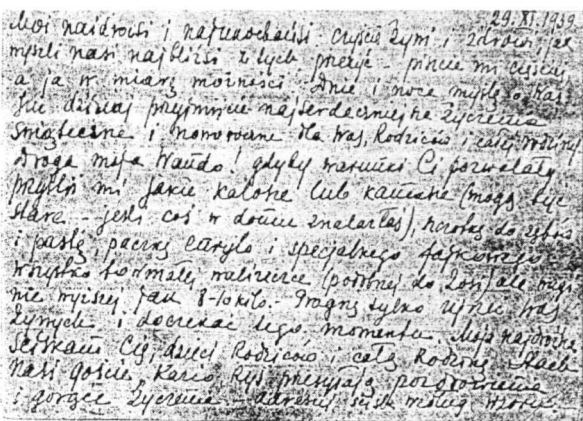 29.XI.1939
Moi najdrożsi i najukochańsi czyście żywi i zdrowi, jak
myśli nasi najbliżsi z tych przeżyć - piszcie mi częściej
a ja w miarę możności. Dnie i noce myślę o Was
dzisiaj przyjmijcie najserdeczniejsze życzenia
świąteczne i noworoczne dla Was, Rodziców i całej rodziny
Droga moja Wando! gdyby warunki Ci pozwalały
przyślij mi jakie kalosze lub kamasze (mogą być
stare - jeśli coś w domu znalazłaś), do zębów
i pastę, paczkę i specjalnego fajkowego -
wszystko to w małej walizeczce (podobnej do ale
nie wyżej jak 8-10 kilo. - Pragnę tylko ujrzeć Was
żywych i doczekać tego momentu. Moja najdroższa
ściskam Cię, dzieci Rodziców i całą Rodzinę
nasi goście, Kazio, Ryś przesyłają pozdrowienia
i gorące życzenia -